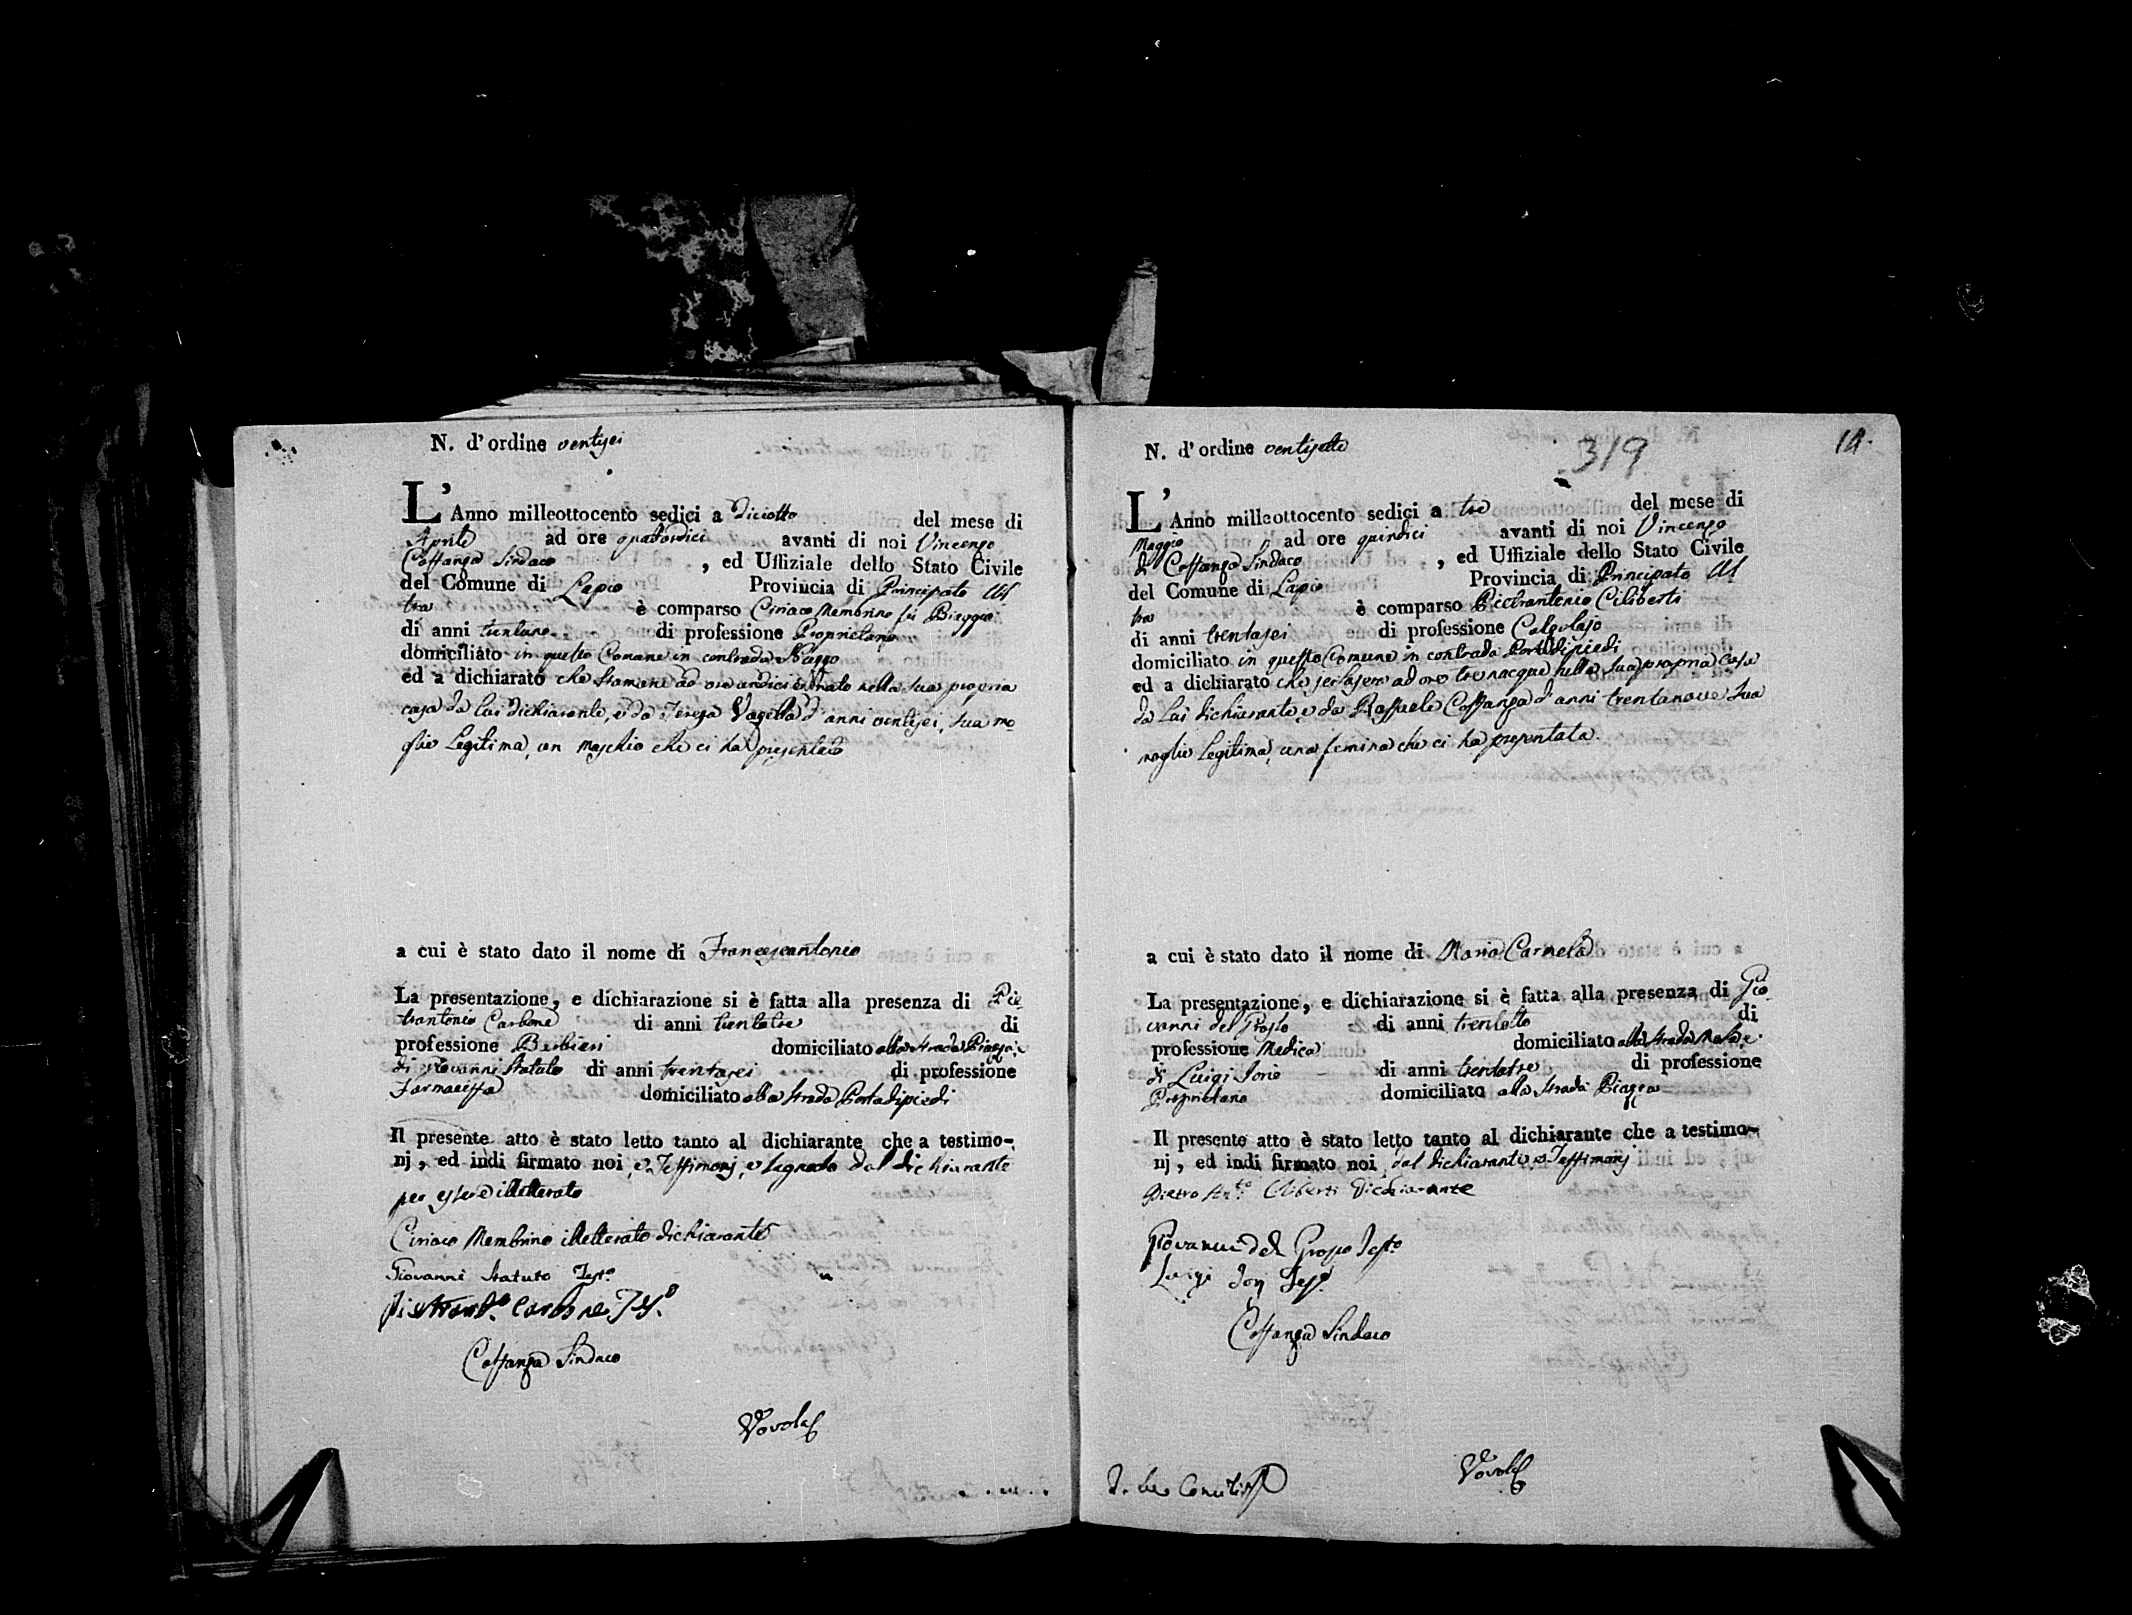 N. d'ordine ventisei
L'Anno milleottocento sedici a diciotto del mese di
Aprile ad ore quatordici avanti di noi Vincenzo
Costanza Sindaco , ed Uffiziale dello Stato Civile
del Comune di Lapio Provincia di Principato Ul
tra è comparso Ciriaco Membrino fù Biaggio
di anni trentuno di professione Proprietario
domiciliato in questo Comune in contrada
ed a dichiarato che stamane ad ore undici è nato nella sua propria
casa da lui dichiarante, e da Teresa Vagilla d'anni ventisei, sua mo
glie Legitima, un maschio che ci ha presentato
a cui è stato dato il nome di Francescantonio
La presentazione, e dichiarazione si è fatta alla presenza di Pie
trantonio Carbone di anni trentatre di
professione Barbieri domiciliato alla strada Piazza, e
di Giovanni Statuto di anni trentasei di professione
Farmacista domiciliato alla strada Portadipiedi
Il presente atto è stato letto tanto al dichiarante che a testimo-
nj, ed indi firmato noi, e Testimonj, e segnato dal dichiarante
per essere illetterato
Ciriaco Membrino illetterato dichiarante
Giovanni Statuto Testo
Pietrant.o Carbone Tes.o
Costanza Sindaco
N. d'ordine ventisette
319
14.
L'Anno milleottocento sedici a tre del mese di
Maggio ad ore quindici avanti di noi Vincenzo
di Costanza Sindaco , ed Uffiziale dello Stato Civile
del Comune di Lapio Provincia di Principato Ul
tra è comparso Pietrantonio Ciliberti
di anni trentasei di professione Calzolajo
domiciliato in questo Comune in contrada Portadipiedi
ed a dichiarato che jersera ad ore tre nacque nella sua propria casa
da lui dichiarante, e da Raffaele Costanza d'anni trentanove sua
moglie Legitima, una femina che ci ha presentata.
a cui è stato dato il nome di Maria Carmela
La presentazione, e dichiarazione si è fatta alla presenza di Gio
vanni del Grosso di anni trentotto di
professione Medico domiciliato alla strada e
di Luigi Jorio di anni trentatre di professione
Proprietario domiciliato alla strada Piazza
Il presente atto è stato letto tanto al dichiarante che a testimo-
nj, ed indi firmato noi, dal dichiarante, e Testimonj
Pietro Ant.o Ciliberti Dichiarante
Giovanni del Grosso Test.o
Luigi Test.o
Costanza Sindaco